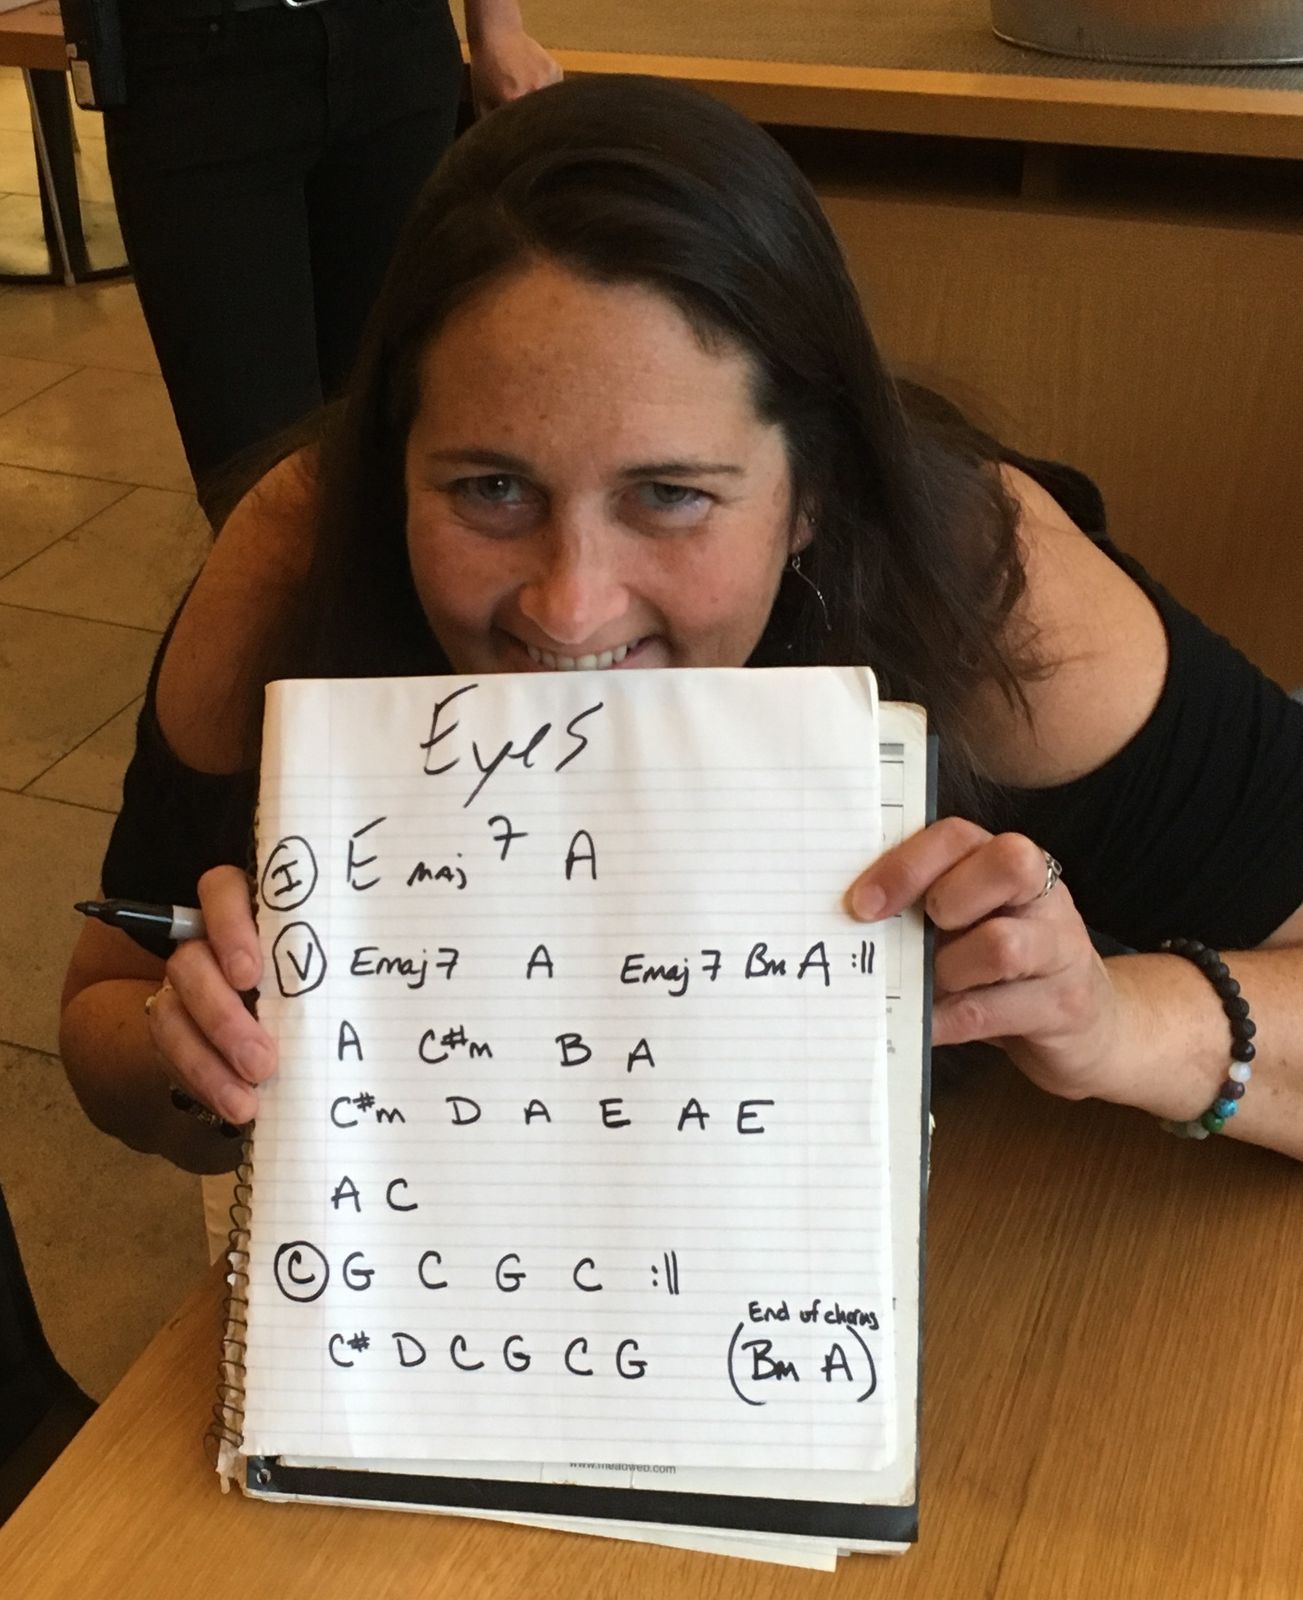 Eyes
I E maj 7 A
V Emaj7 A Emaj7 Bm A :||
A C#m B A
C#m D A E A E
A C
C G C G C :||
End of chorus
C# D C G C G (Bm A)
www.meadweb.com